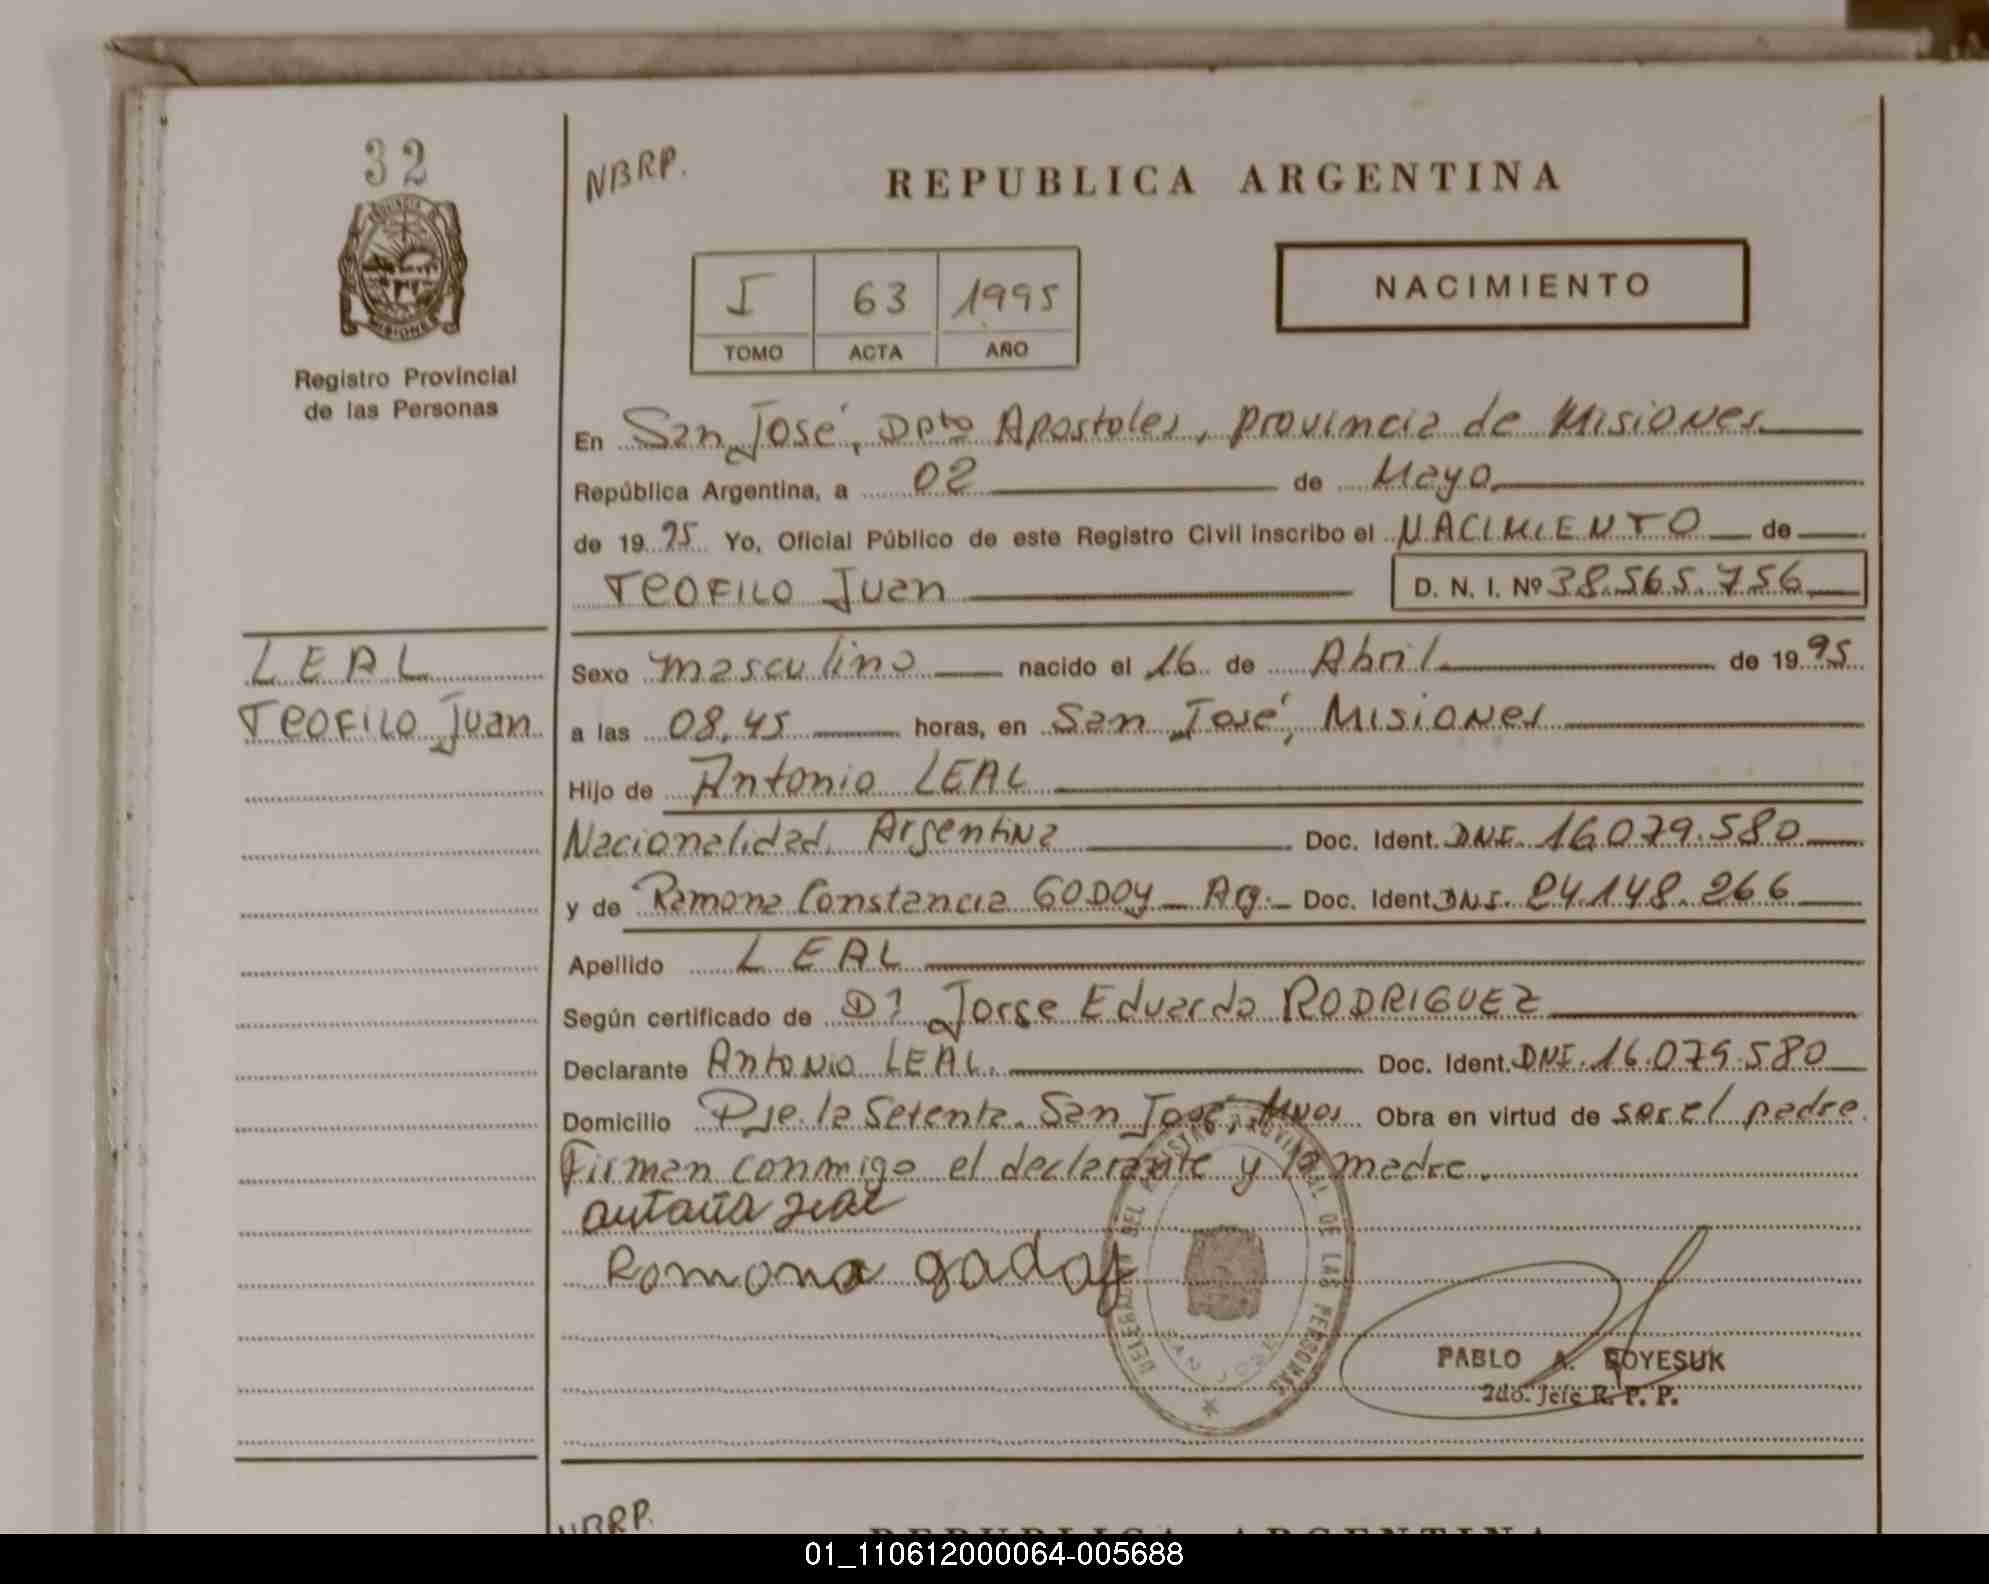 32
NBRP.
REPUBLICA ARGENTINA
PROVINCIA DE
MISIONES
I 63 1995
TOMO ACTA AÑO
NACIMIENTO
Registro Provincial
de las Personas
En San José, Dpto Apostoles, provincia de Misiones.
República Argentina, a 02 de Mayo
de 1995 Yo, Oficial Público de este Registro Civil inscribo el NACIMIENTO de
TEOFILO Juan D. N. I. Nº 38.565.756
LEAL
TEOFILO Juan
Sexo masculino nacido el 16 de Abril de 1995
a las 08,45 horas, en San José, Misiones
Hijo de Antonio LEAL
Nacionalidad Argentina Doc. Ident. DNI. 16.079.580
y de Ramona Constancia GODOY - Arg. - Doc. Ident. DNI. 24.148.266
Apellido LEAL
Según certificado de Dr Jorge Eduardo RODRIGUEZ
Declarante Antonio LEAL. Doc. Ident. DNI. 16.079.580
Domicilio Pje. la Setenta. San José, Mnes. Obra en virtud de ser el padre.
Firman conmigo el declarante y la madre.
Ramona godoy
DEL REGISTRO PROVINCIAL DE LAS PERSONAS
SAN JOSE
PABLO A. BOYESUK
2do. Jefe R. P. P.
NBRP.
REPUBLICA ARGENTINA
01_110612000064-005688